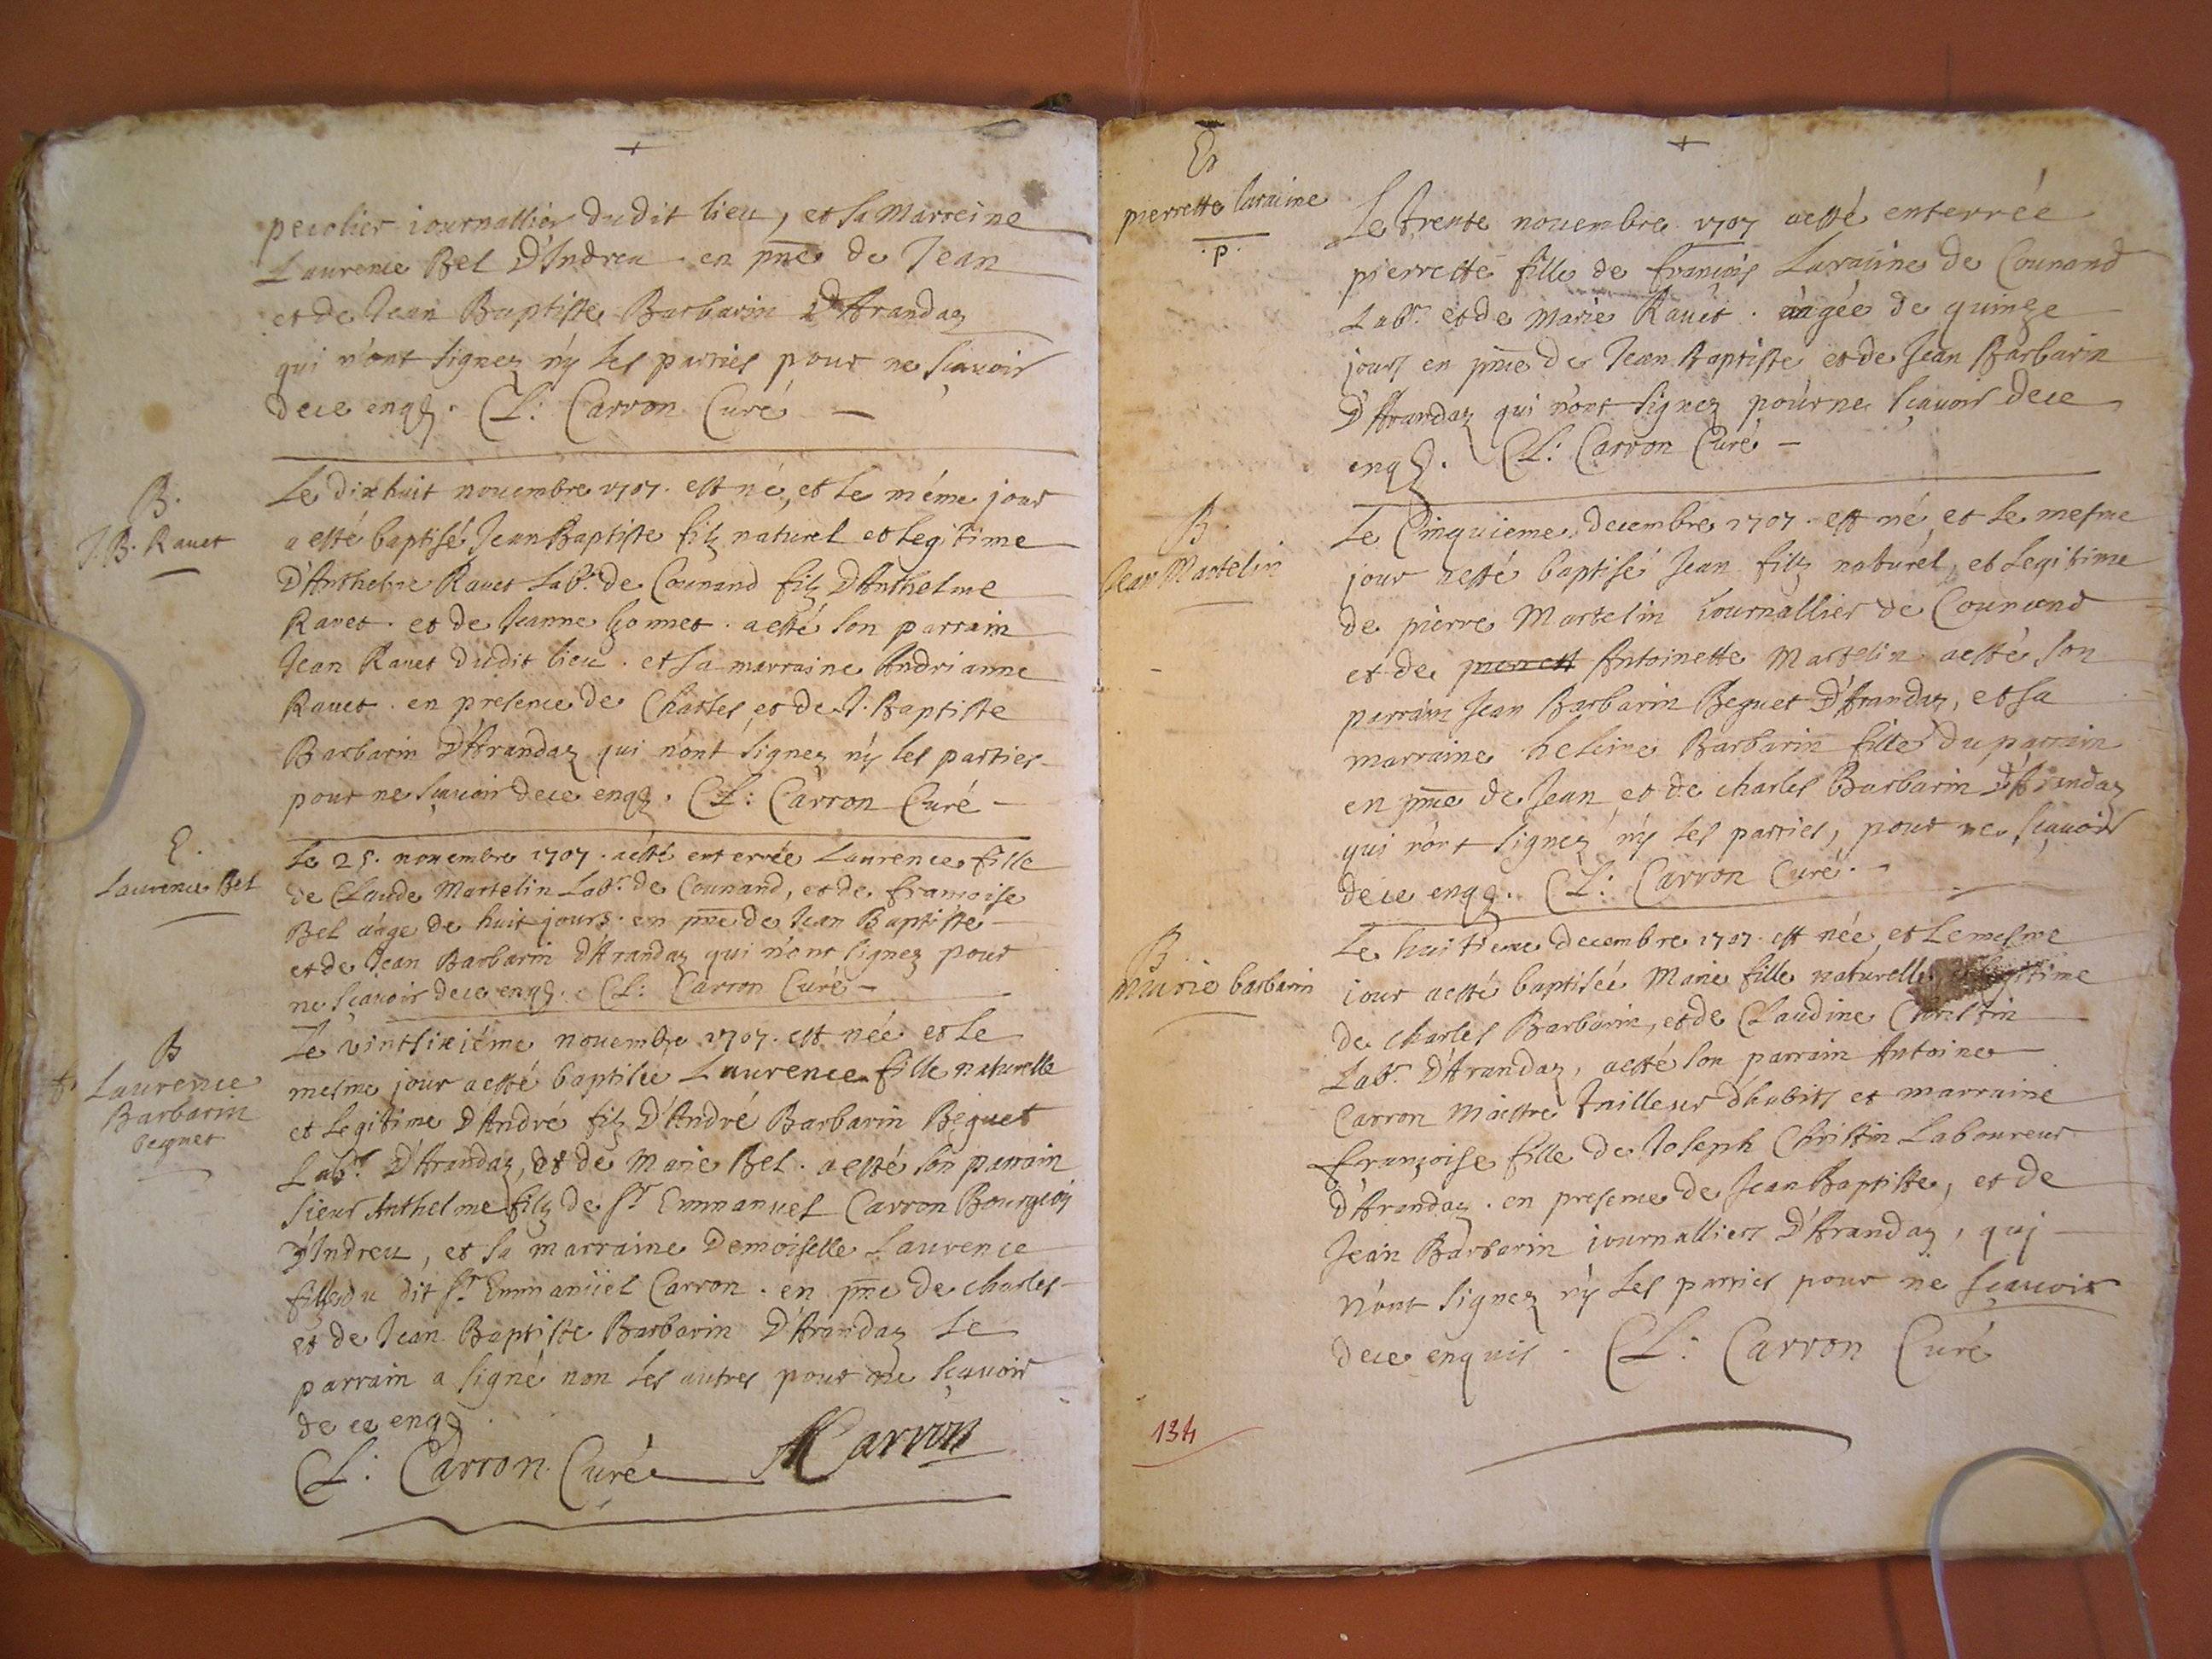 peiolier iournallier dudit lieu, et sa Marreine
Laurence Bel D'Indreu en pn̄e de Jean
et de Jean Baptiste Barbarin D'Arandaz
qui n'ont signez n'y les parties pour ne sçavoir
de ce enq. Cl: Carron Curé
B.
J. B. Ravet
Le dixhuit novembre 1707. est né, et le méme jour
a esté baptisé Jean Baptiste filz naturel et legitime
D'Anthelme Ravet Labr. de Counand filz D'Anthelme
Ravet. et de Jeanne . a esté son parrain
Jean Ravet dudit lieu. et sa marraine Andrianne
Ravet. en presence de Charles et de J. Baptiste
Barbarin D'Arandaz qui n'ont signez n'y les parties
pour ne sçavoir de ce enq. Cl: Carron Curé
E.
Laurence Bel
Le 25. novembre 1707. a esté enterrée Laurence fille
de Claude Martelin Labr. de Counand, et de françoise
Bel aâge de huit jours. en pn̄e de Jean Baptiste
et de Jean Barbarin D'Arandaz qui n'ont signez pour
ne sçavoir de ce enq. Cl: Carron Curé
B
Laurence
Barbarin
Beguet
Le vintsixiéme novembre 1707. est née et le
mesme jour a esté baptisée Laurence fille naturelle
et legitime D'André filz D'André Barbarin Beguet
Labr. D'Arandaz, et de Marie Bel. a esté son parrain
sieur Anthelme filz de sr. Emmanuel Carron Bourgeois
D'Indreu, et sa marraine Demoiselle Laurence
fille du dit sr. Emmanüel Carron. en pn̄e de charles
et de Jean Baptiste Barbarin D'Arandaz Le
parrain a signé non les autres pour ne sçavoir
de ce enq
Cl: Carron Curé ACarron
Er
pierrette laraine
.p.
Le trente novembre 1707 a esté enterrée
pierrette fille de françois Laraine de Counand
Labr. et de Marie Ravet. aagée de quinze
jours en pn̄ce de Jean Baptiste et de Jean Barbarin
D'Arandaz qui n'ont signez pour ne sçavoir de ce
enq. Cl: Carron Curé
B
Jean Martelin
Le Cinquieme decembre 1707. est né et le mesme
jour a esté baptisé Jean filz naturel, et Legitime
de pierre Martelin iournallier de Counand
et de Antoinette Martelin a esté son
parrain Jean Barbarin Beguet D'Arandaz, et sa
marraine heleine Barbarin fille du parrain
en pn̄ce de Jean et de charles Barbarin D'Arandaz
qui n'ont signez n'y les parties, pour ne sçavoir
de ce enq. Cl: Carron Curé.
B
Marie barbarin
Le huitieme decembre 1707. est née, et Le mesme
iour a esté baptisée Marie fille naturelle et legitime
de charles Barbarin, et de Claudine Christin
Labr. D'Arandaz, a esté son parrain Antoine
Carron Maistre Tailleur d'habits et marraine
françoise fille de Joseph Christin Laboureur
d'Arandaz. en presence de Jean Baptiste, et de
Jean Barbarin iournalliers D'Arandaz, qui
n'ont signez n'y Les parties pour ne sçavoir
de ce enquis. Cl: Carron Curé
134